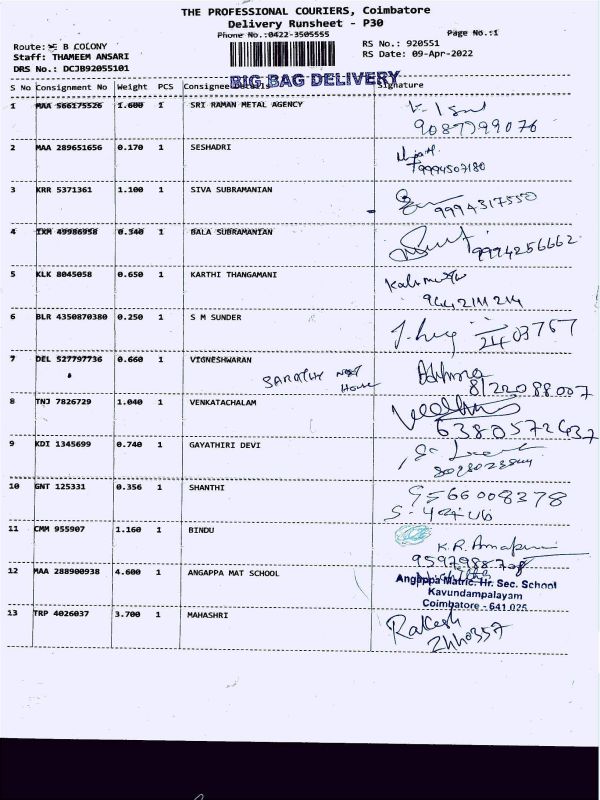 THE PROFESSIONAL COURIERS, Coimbatore
Delivery Runsheet - P30
Phone No.:0422-3505555 Page No.:1
Route: B COLONY RS No.: 920551
Staff: THAMEEM ANSARI RS Date: 09-Apr-2022
DRS No.: DCJB92055101
BIG BAG DELIVERY
S No Consignment No Weight PCS Consignee Details Signature
1 MAA 566175526 1.600 1 SRI RAMAN METAL AGENCY
9087799076
2 MAA 289651656 0.170 1 SESHADRI
9994507180
3 KRR 5371361 1.100 1 SIVA SUBRAMANIAN 9994317550
4 IXM 49986958 0.340 1 BALA SUBRAMANIAN 9994256662
5 KLK 8045058 0.650 1 KARTHI THANGAMANI
9442111214
6 BLR 4350870380 0.250 1 S M SUNDER
2403767
7 DEL 527797736 0.660 1 VIGNESHWARAN
SARATHY NEXT HOUSE 8122088007
8 TNJ 7826729 1.040 1 VENKATACHALAM
6380572437
9 KDI 1345699 0.740 1 GAYATHIRI DEVI
10 GNT 125331 0.356 1 SHANTHI 9566008378
11 CMM 955907 1.160 1 BINDU
K.R.
12 MAA 288900938 4.600 1 ANGAPPA MAT SCHOOL
Angappa Matric. Hr. Sec. School
Kavundampalayam
Coimbatore - 641 025
13 TRP 4026037 3.700 1 MAHASHRI Rakesh
2440357